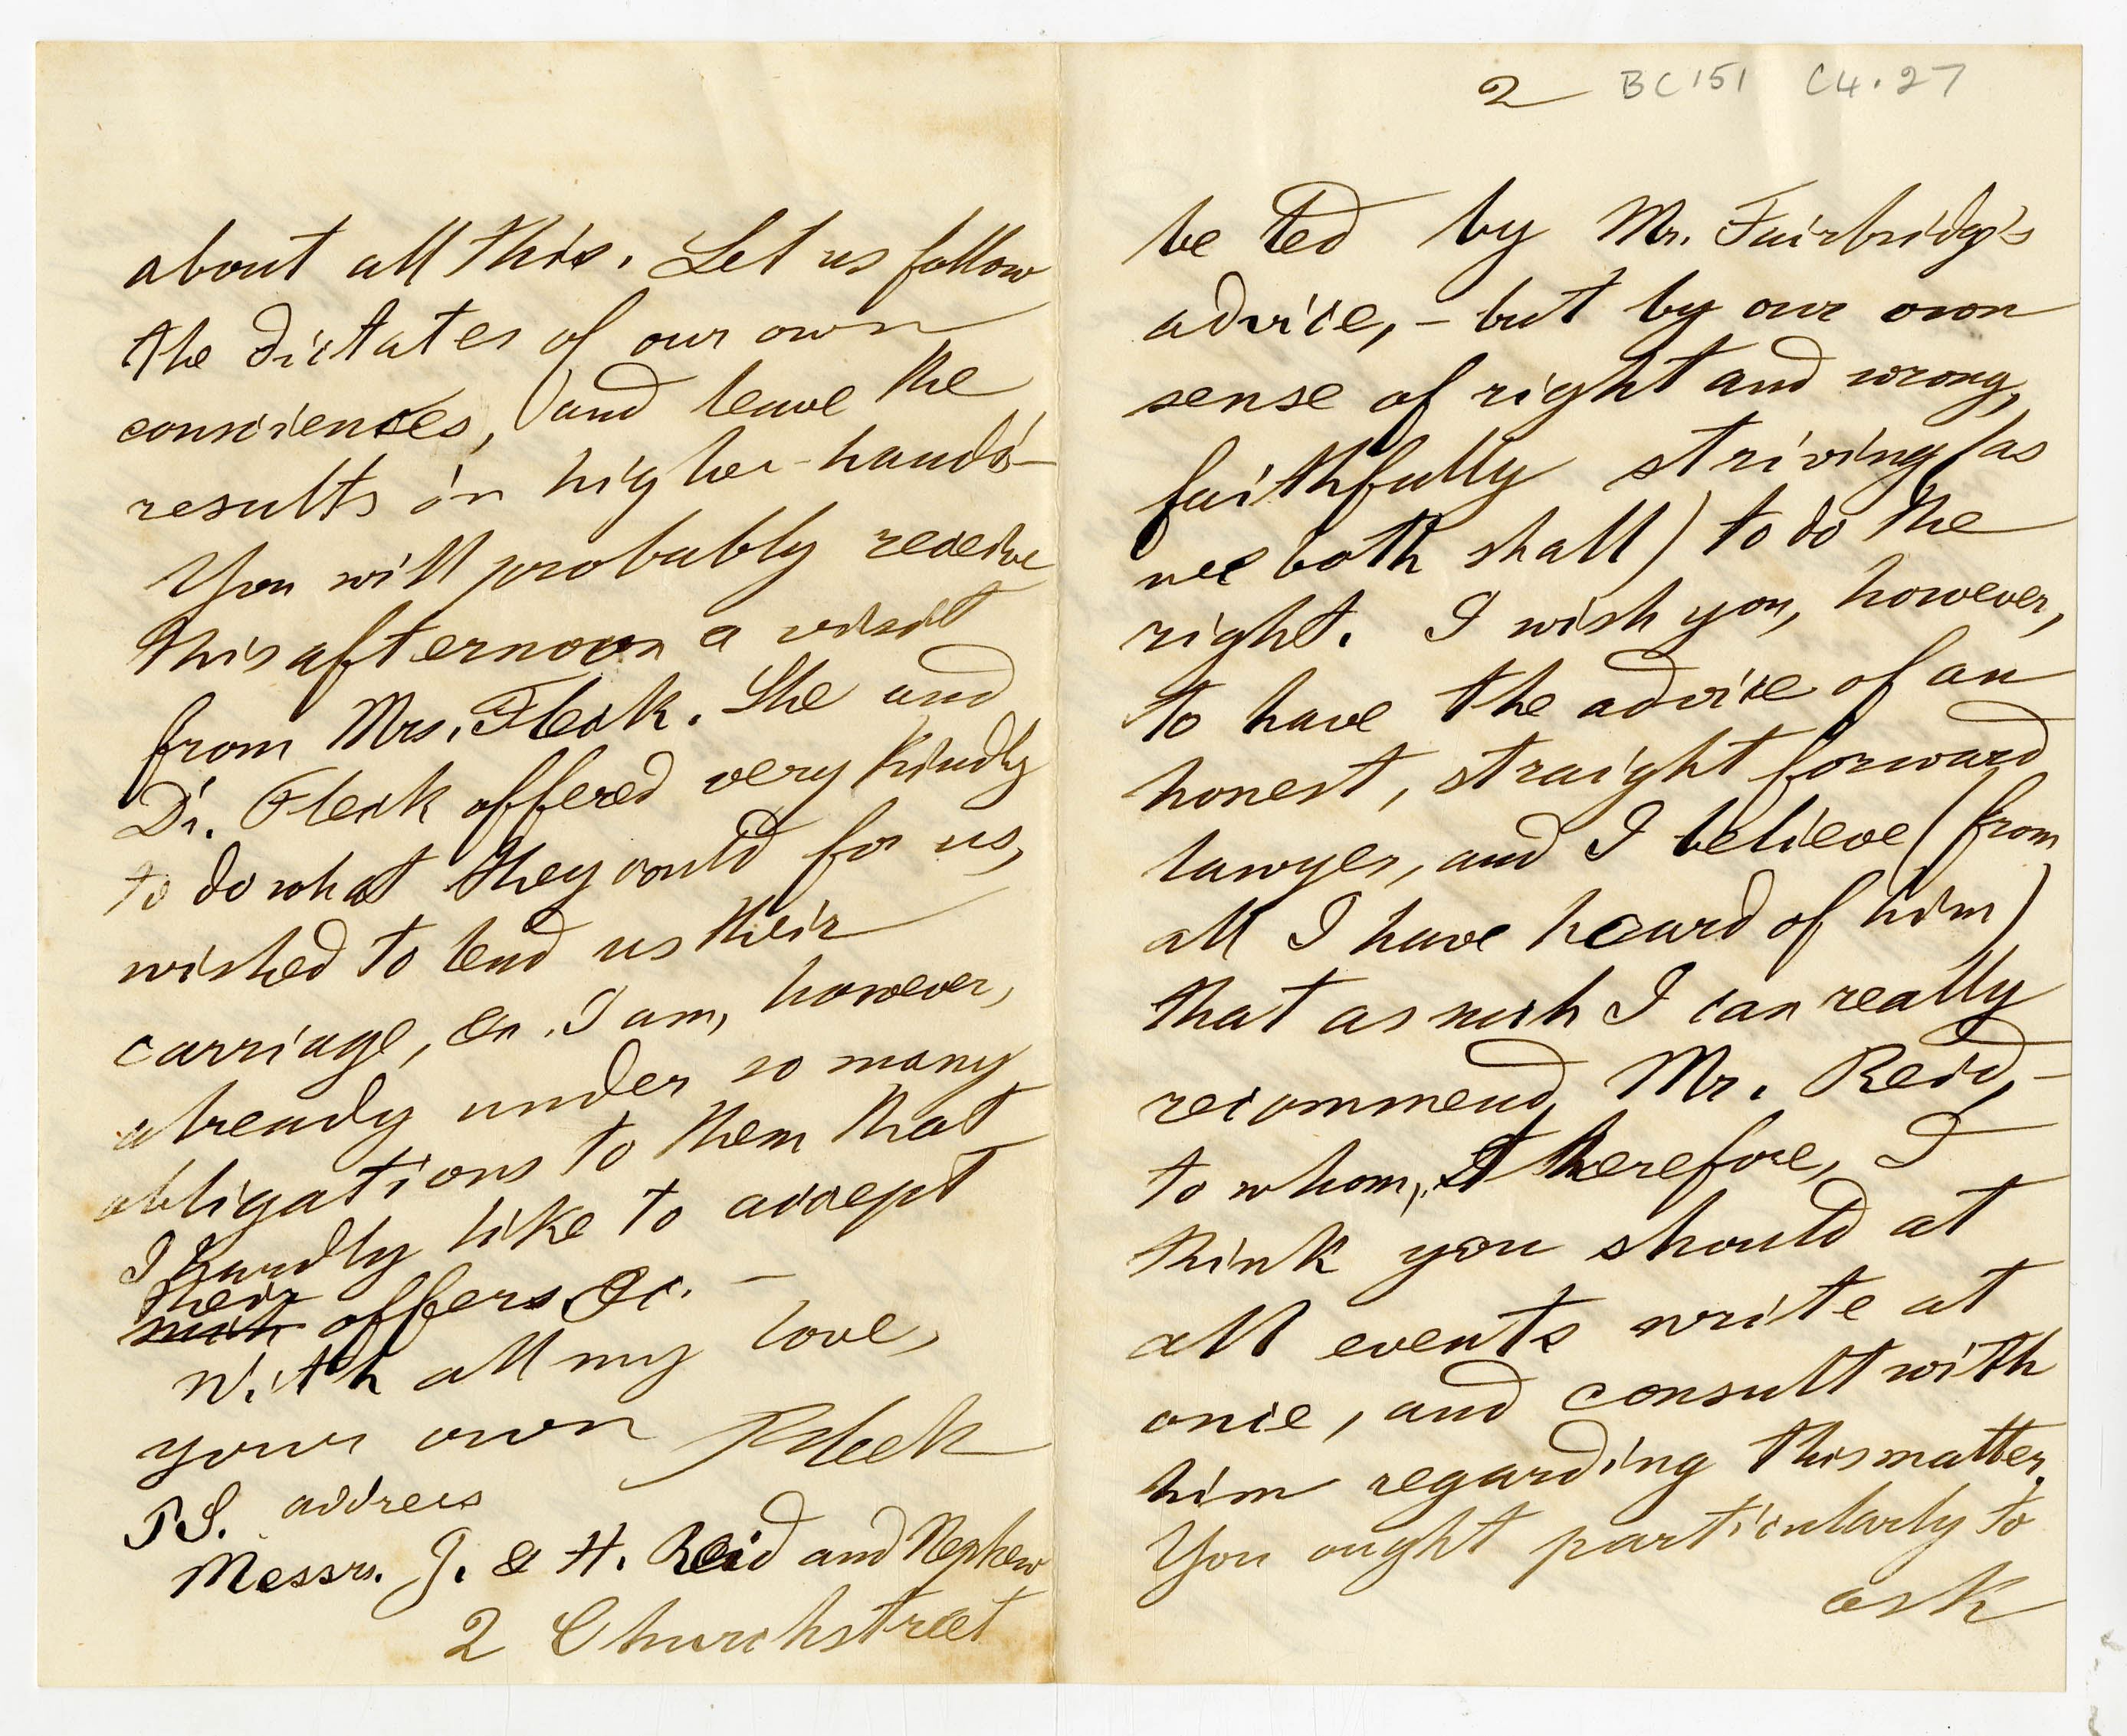 about all this. Let us follow
the dictates of our own
consciences, (and leave the
results in higher hands -
You will probably receive
this afternoon a visit
from Mrs. Fleck. She and
Dr. Fleck offered very kindly
to do what they could for us,
wished to lend us their
carriage, &c. I am, however,
already under so many
obligations to them that
I hardly like to accept
their
such offers &c. —
With all my love,
your own Bleek
PS. address
Messrs. J. & H. Reid and Nephew
2 Churchstreet
2 BC 151 C4.27
be led by Mr. Fairbridge's
advice, - but by our own
sense of right and wrong,
faithfully striving (as
we both shall) to do the
right. I wish you, however,
to have the advice of an
honest, straight forward
lawyer, and I believe (from
all I have heard of him)
that as such I can really
recommend Mr. Reid, -
to whom, therefore, I
think you should at
all events write at
once, and consult with
him regarding this matter.
You ought particularly to
ask